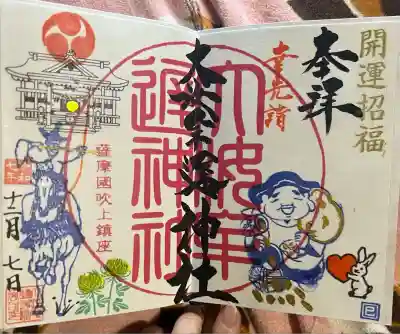 開運招福
奉拝
幸先詣
大汝牟遅神社
大汝牟遅神社
薩摩國吹上鎮座
令和
七年
十二月七日